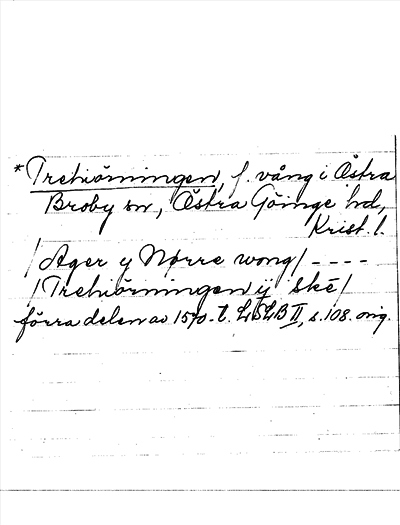 *Trehiörningen, f. vång i Östra
Broby sn, Östra Göinge hd,
Krist. l.
/Ager y Nørre wong/ ----
/Trehiörningen ij skē/
förra delen av 1570-t. LSLB II, s. 108. orig.